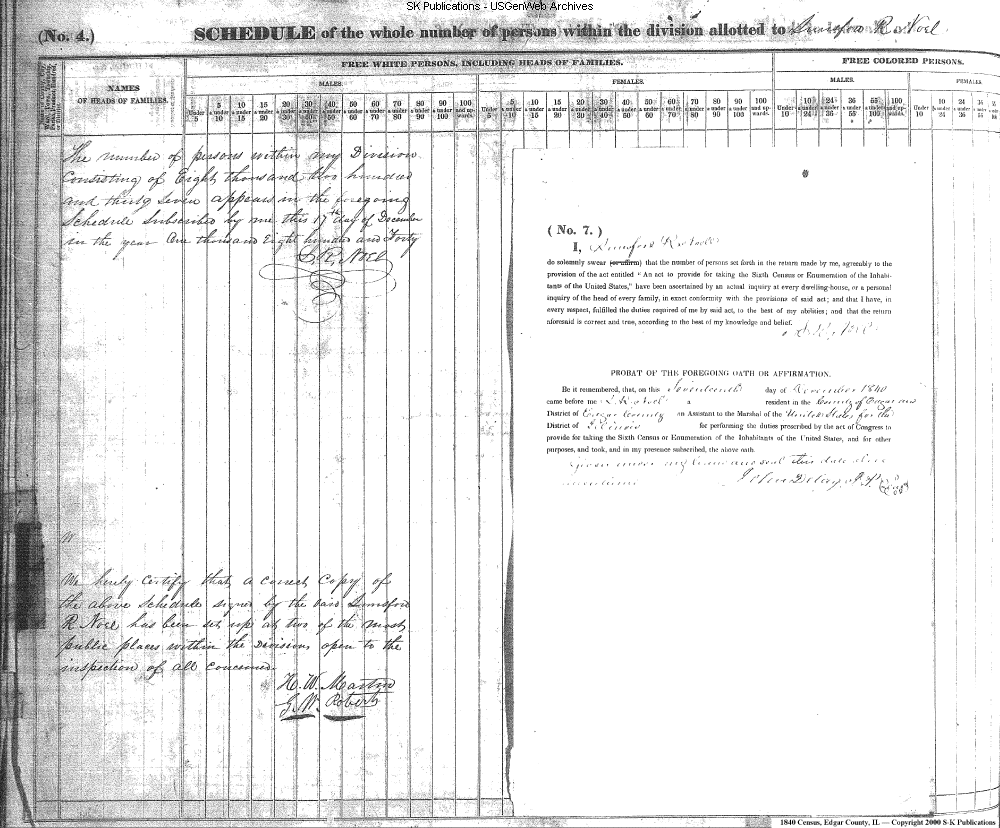 SK Publications - USGenWeb Archives
(No. 4.) SCHEDULE of the whole number of persons within the division allotted to Lunsford R. Noel
FREE WHITE PERSONS, INCLUDING HEADS OF FAMILIES. FREE COLORED PERSONS.
NAMES OF HEADS OF FAMILIES. MALES. FEMALES. MALES. FEMALES
Under 5 5 & under 10 10 & under 15 15 & under 20 20 & under 30 30 & under 40 40 & under 50 50 & under 60 60 & under 70 70 & under 80 80 & under 90 90 & under 100 100 and upwards. Under 5 5 & under 10 10 & under 15 15 & under 20 20 & under 30 30 & under 40 40 & under 50 50 & under 60 60 & under 70 70 & under 80 80 & under 90 90 & under 100 100 and upwards. Under 10 10 & under 24 24 & under 36 36 & under 55 55 & under 100 100 and upwards. Under 10 10 & under 24 24 & under 36 36 & under 55
The number of persons within my Division
Consisting of Eight thousand two hundred
and thirty seven appears in the foregoing
Schedule Subscribed by me this 17th day of December
in the year One thousand Eight hundred and Forty
L R. NOEL
We hereby certify that a correct Copy of
the above Schedule signed by the said Lunsford
R Noel has been set up at two of the most
public places within the Division open to the
inspection of all concerned.
H. W. Martin
G. W. Roberts
(No. 7.)
I, Lunsford R. Noel
do solemnly swear (or affirm) that the number of persons set forth in the return made by me, agreeably to the
provision of the act entitled "An act to provide for taking the Sixth Census or Enumeration of the Inhabi-
tants of the United States," have been ascertained by an actual inquiry at every dwelling-house, or a personal
inquiry of the head of every family, in exact conformity with the provisions of said act; and that I have, in
every respect, fulfilled the duties required of me by said act, to the best of my abilities; and that the return
aforesaid is correct and true, according to the best of my knowledge and belief.
L R. Noel
PROBAT OF THE FOREGOING OATH OR AFFIRMATION.
Be it remembered, that, on this Seventeenth day of December 1840
came before me L R Noel a resident in the County of Edgar and
District of Edgar County an Assistant to the Marshal of the United States for the
District of Illinois for performing the duties prescribed by the act of Congress to
provide for taking the Sixth Census or Enumeration of the Inhabitants of the United States, and for other
purposes, and took, and in my presence subscribed, the above oath.
Given under my hand and seal this date above
John Delay J. P.
1840 Census, Edgar County, IL — Copyright 2000 S-K Publications